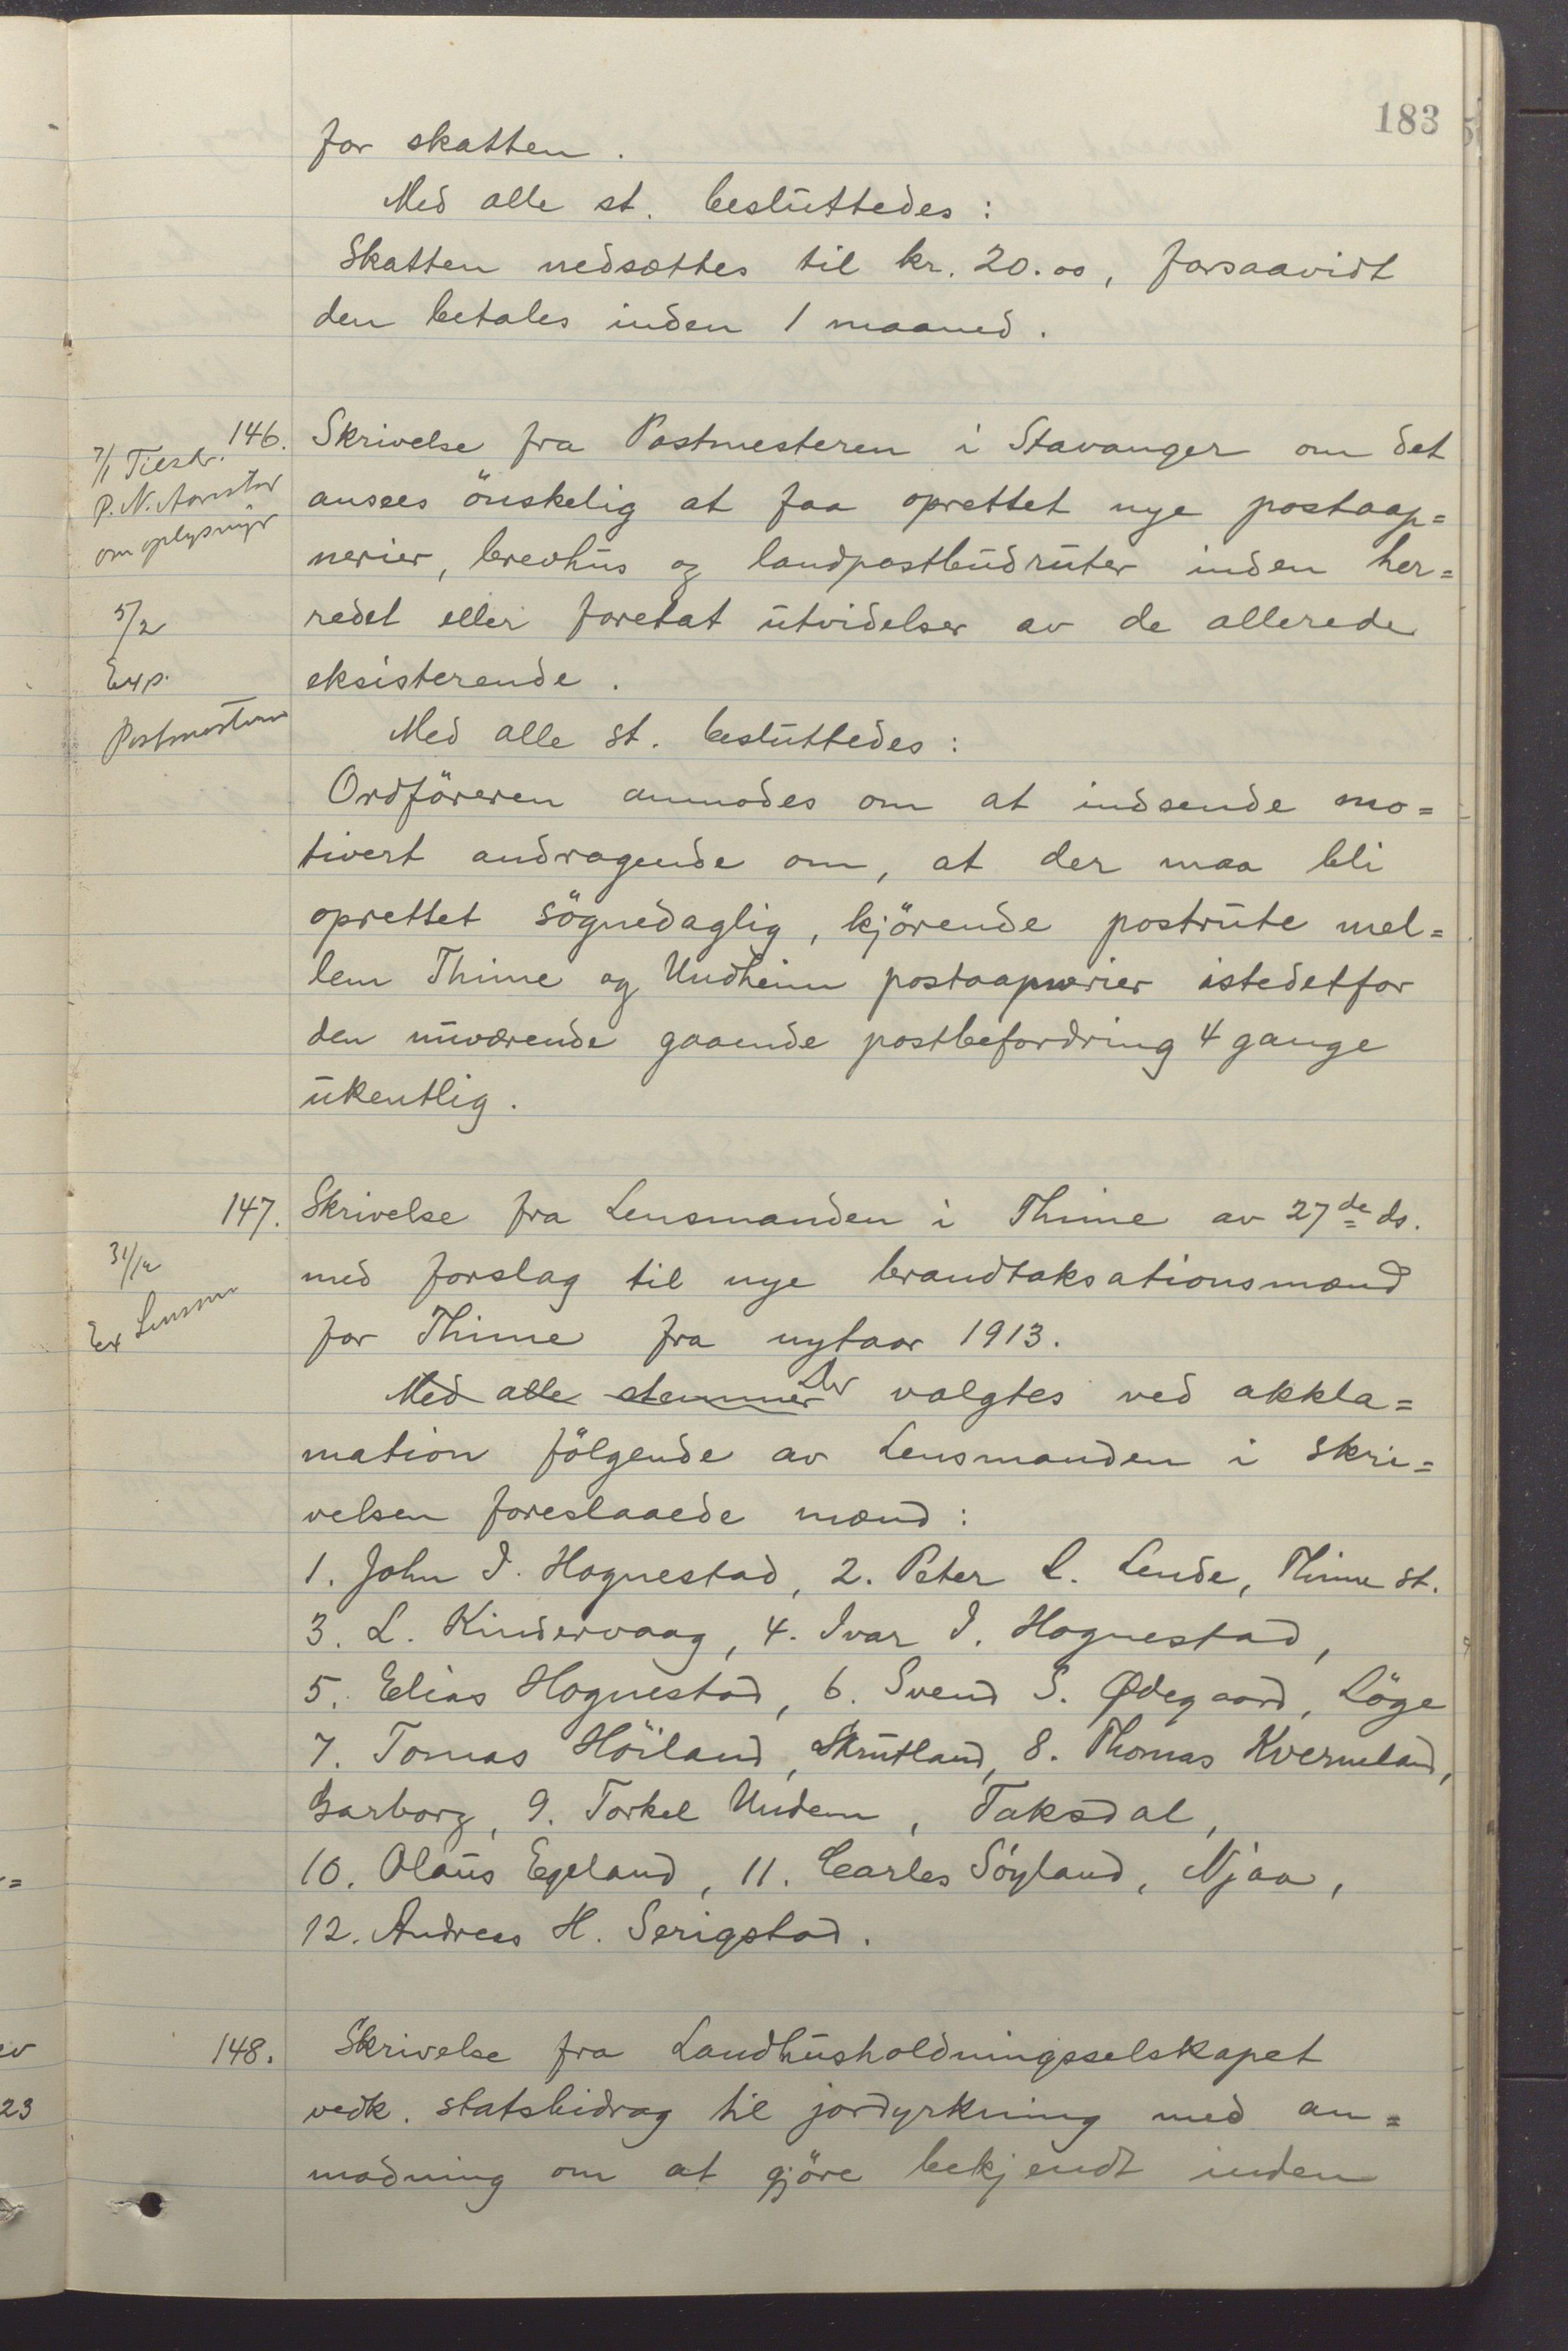 183
for skatten.
Med alle st. besluttedes:
Skatten nedsættes til kr. 20.00, forsaavidt
den betales inden 1 maaned.
146.
7/1 Tilskr.
P. N.
om oplysnigr
5/2
Exp.
Postmesteren
Skrivelse fra Postmesteren i Stavanger om det
ansees önskelig at faa oprettet nye postaap=
nerier, brevhus og landpostbudruter inden her=
redet eller foretat utvidelser av de allerede
eksisterende.
Med alle st. besluttedes:
Ordföreren anmodes om at indsende mo=
tivert andragende om, at der maa bli
oprettet sögnedaglig, kjörende postrute mel=
lem Thime og Undheim postaapnerier istedetfor
den nuværende gaaende postbefordring 4 gange
ukentlig.
147.
31/12
Ex Lensm
Skrivelse fra Lensmanden i Thime av 27de ds.
med forslag til nye brandtaksationsmænd
for Thime fra nytaar 1913.
Med alle stemmer Der valgtes ved akkla=
mation fölgende av Lensmanden i skri=
velsen foreslaaede mænd:
1. John I. Hognestad, 2. Peter L. Lende, Thime st.
3. L. Kindervaag, 4. Ivar I. Hognestad,
5. Elias Hognestad, 6. Svend S. Ødegaard, Löge
7. Tomas Höiland, Skrutland, 8. Thomas Kverneland,
Garborg, 9. Torkel Undem, Taksdal,
10. Olaus Egeland, 11. Carles Söyland, Njaa,
12. Andreas H. Serigstad.
148.
Skrivelse fra Landhusholdningsselskapet
vedk. statsbidrag til jordyrkning med an=
modning om at gjöre bekjendt inden
23